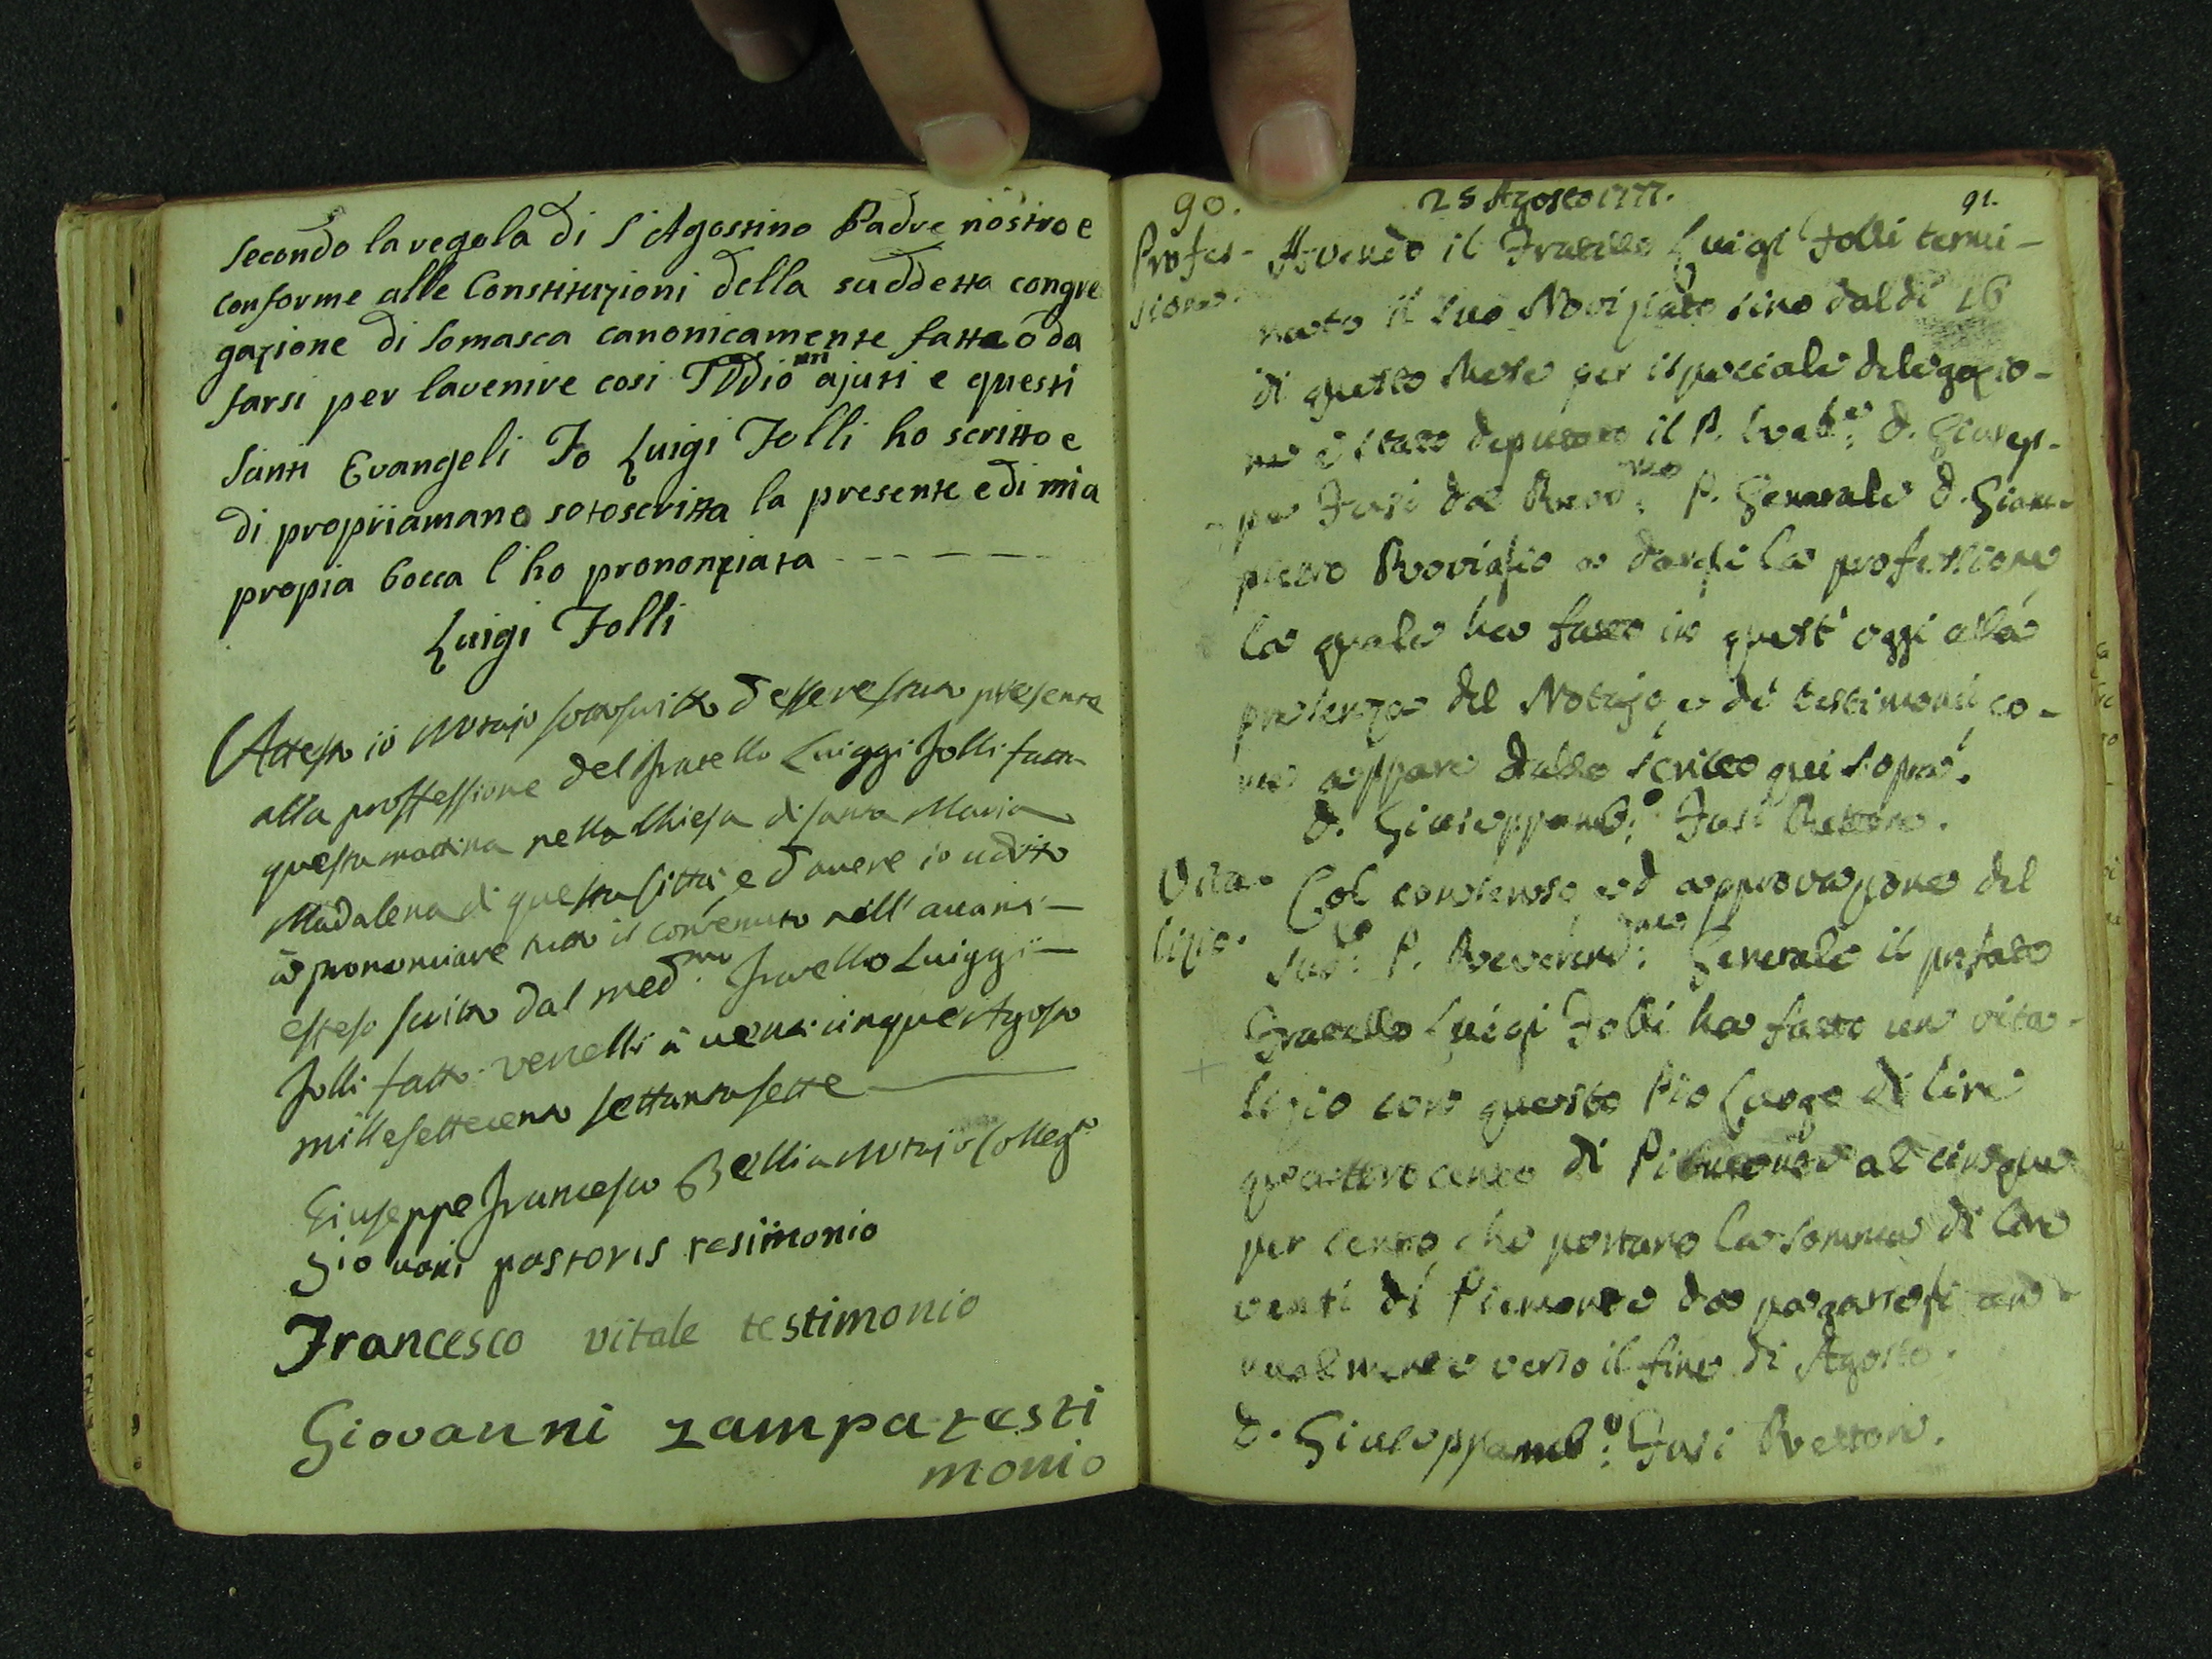 secondo la regola di S Agostino Padre nostro e
conforme alle Constituzioni della suddetta congre
gazione di Somasca canonicamente fatte o da
farsi per lavenire cosi Iddio mi ajuti e questi
Santi Evangeli Io Luigi Folli ho scritto e
di propriamano sotoscritta la presente e di mia
propia bocca l'ho prononziata - - - -
Luigi Folli
Attesto io Notajo sottoscritto d'essere stato presente
alla proffessione del fratello Luiggi Folli fatta
questa mattina nella Chiesa di santa Maria
Madalena di questa Città, e d'avere io udito
à prononciare tutto il contenuto nell'avanti-
esteso scritto dal med.mo fratello Luiggi-
Folli fatto. Vercelli à venti cinque Agosto
mille settecento settantasette
Giuseppe Francesco Bellia Notajo Colleg.to
Gio vani pastoris tesiimonio
Francesco vitale testimonio
Giovanni zampa testi
monio
90.
25 Agosto 1777.
91.
Profes-
sione.
Avendo il Fratello Luigi Folli termi-
nato il suo Noviziato sino dal dì 16
di questo Mese per ispeciale delegazio-
ne è stato deputato il P. D. Giusep-
pe Fasi dal Rev.mo P. Generale D. Giam-
pietro Roviglio a dargli la professione
la quale ha fatto in quest'oggi alla
presenza del Notajo, e de' testimonii co-
me appare dallo scritto qui sopra.
D. Giuseppamb.o Fasi Rettore.
Vita-
lizio.
Col consenso ed approvazione del
sud.to P. Reverend.mo Generale il prefato
Fratello Luigi Folli ha fatto un vita-
lizio con questo Pio Luogo di lire
quattrocento di Piemonte al cinque
per cento, che portano la somma di lire
venti di Piemonte da pagarsegli an-
nualmente verso il fine di Agosto.
D. Giuseppamb.o Fasi Rettore.